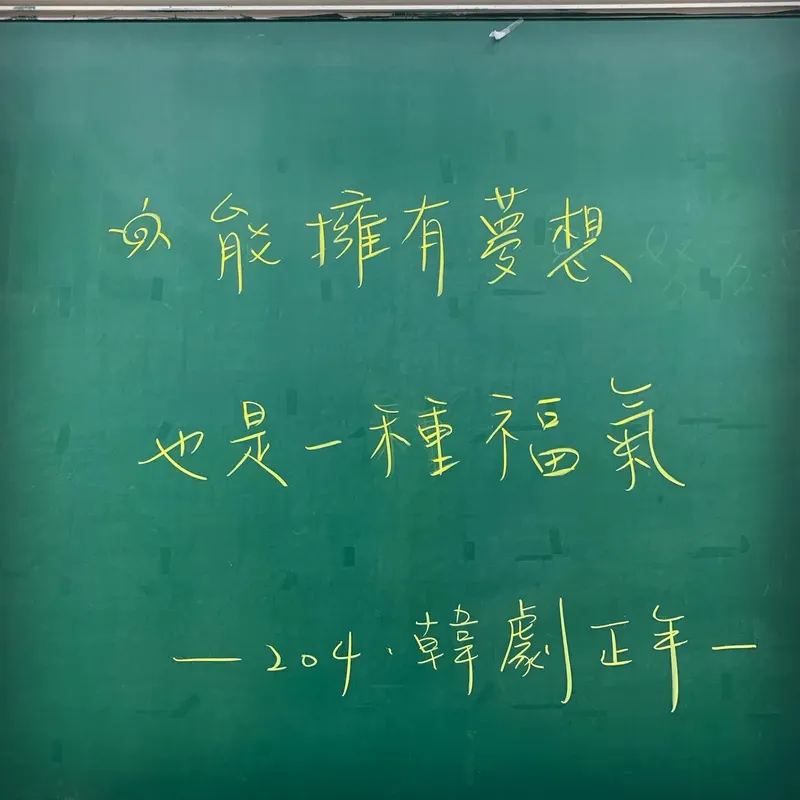 能擁有夢想
也是一種福氣
—204.韓劇正年—